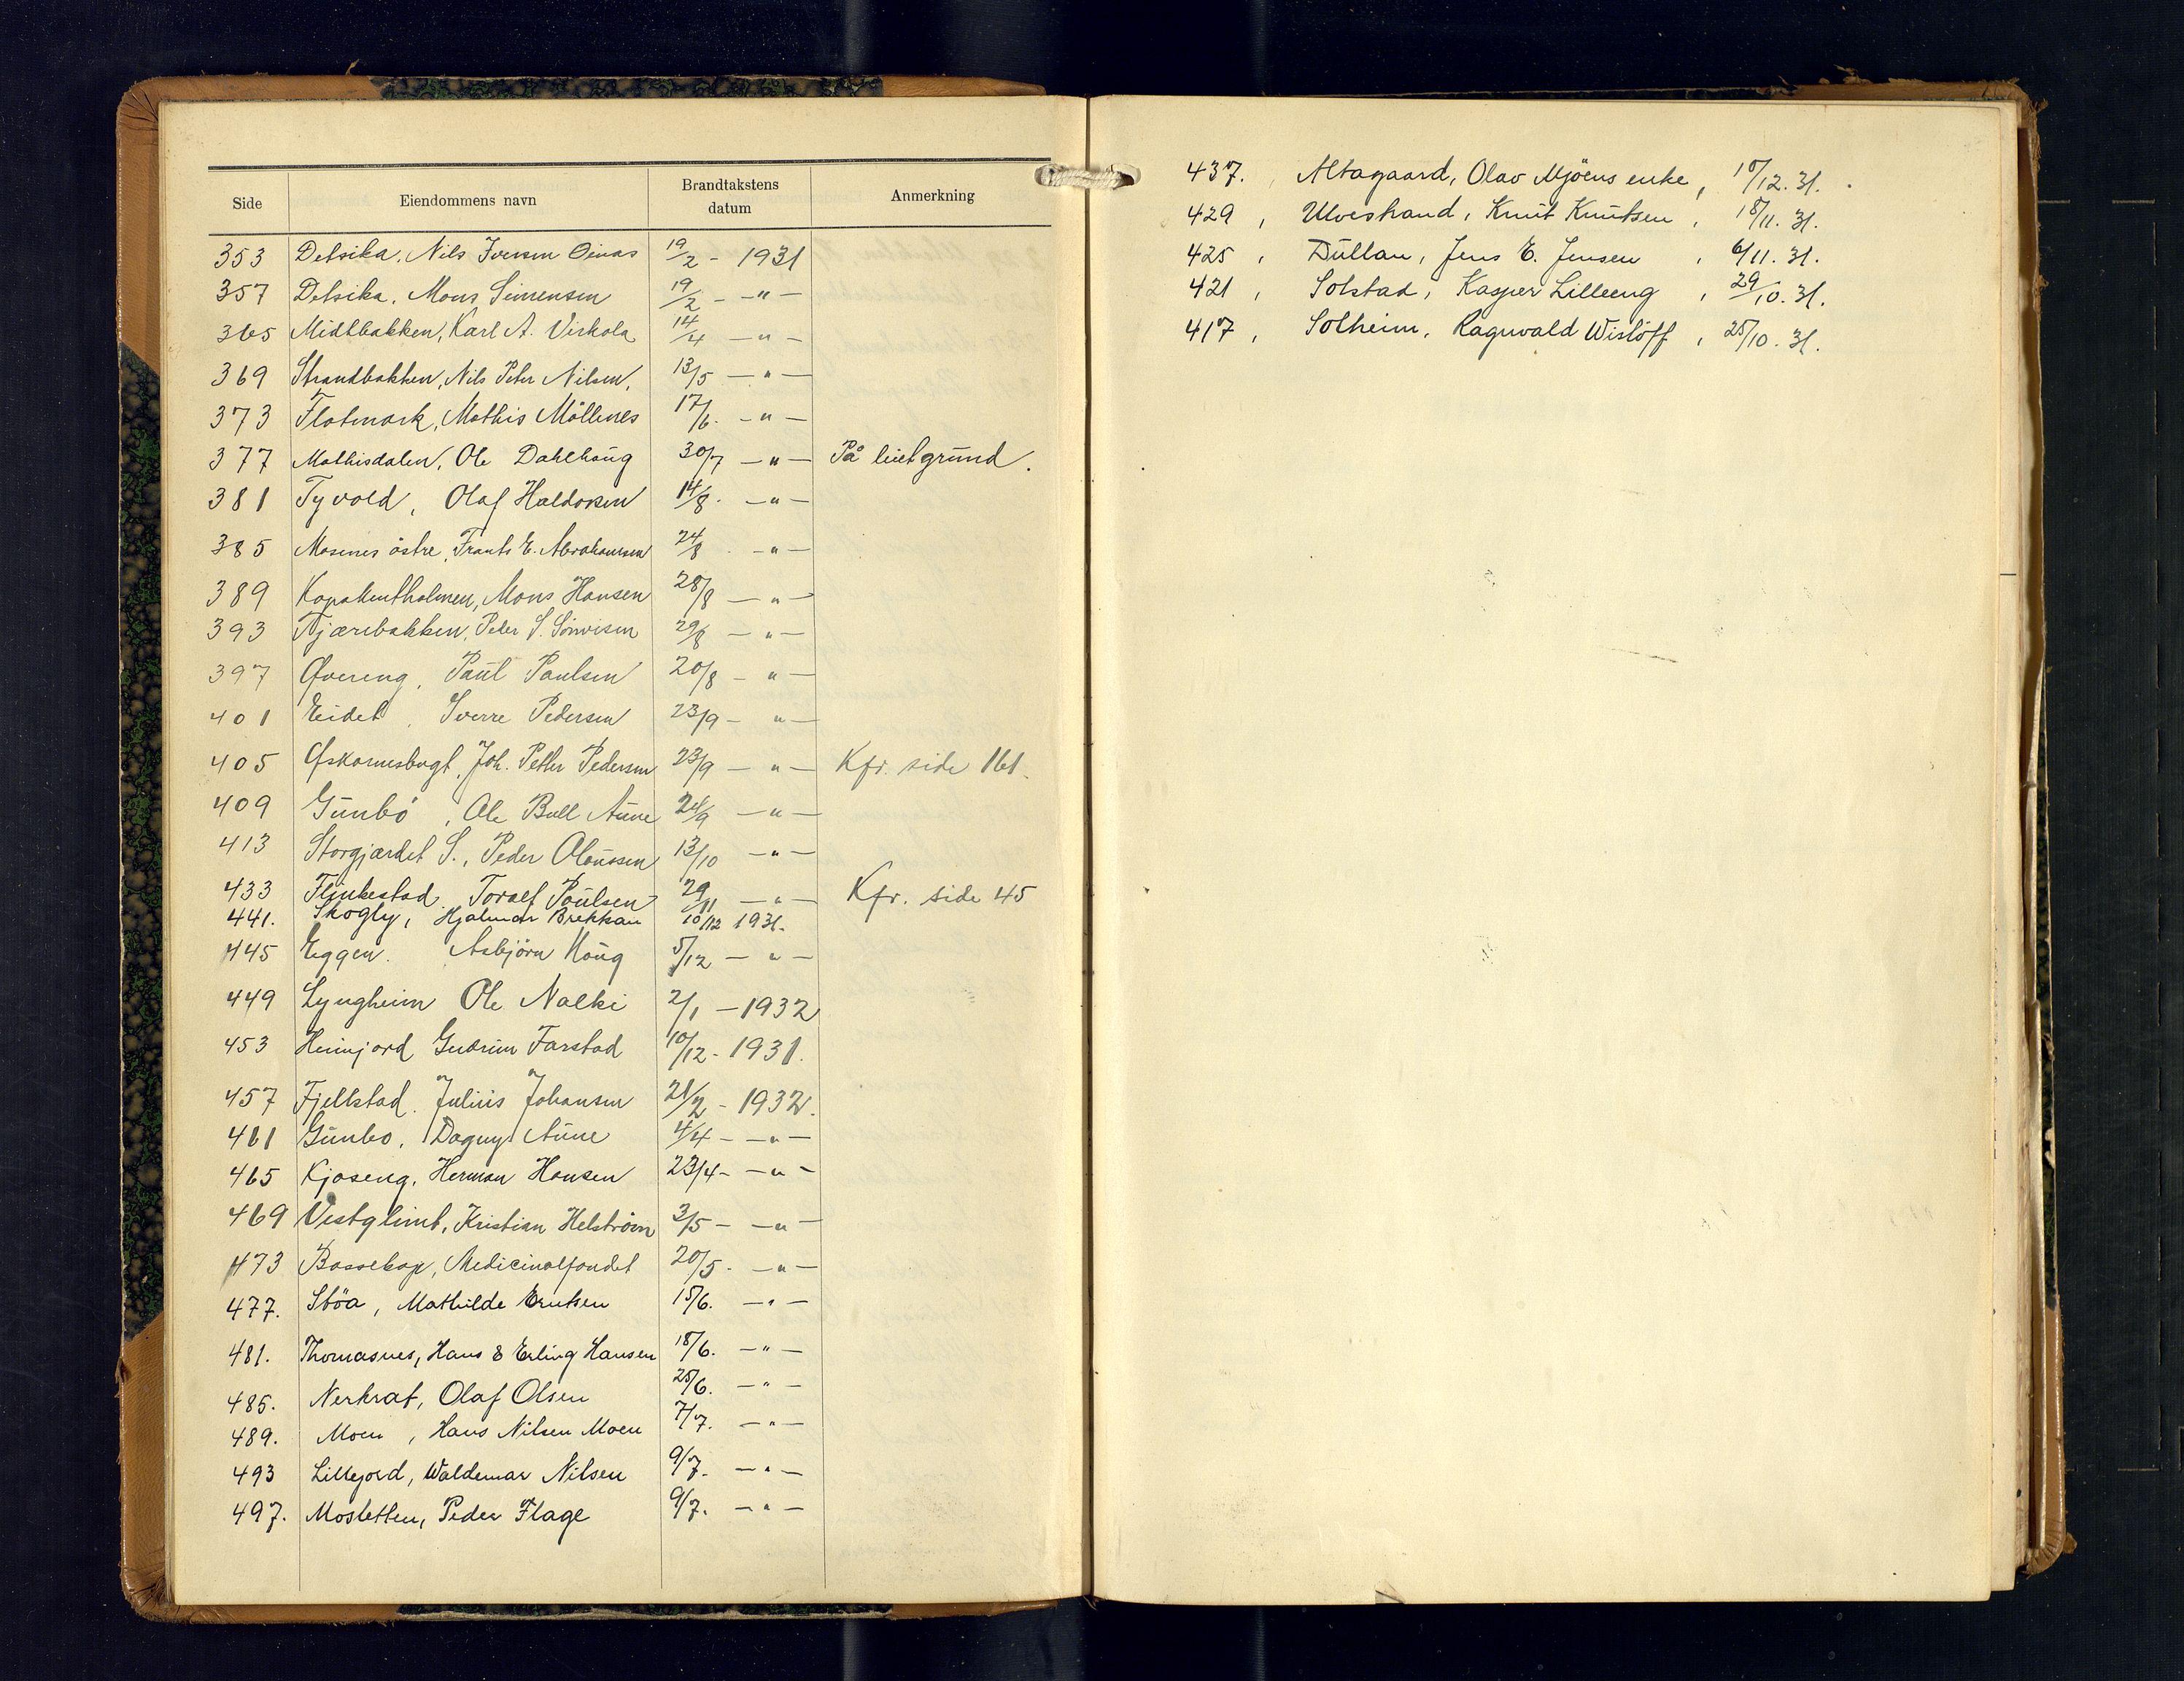 Side Eiendommens navn Brandtakstens datum Anmerkning
353 Detsika, Nils Iversen Oinas 19/2 - 1931
357 Detsika, Mons Simensen 19/2 - -"-
365 Midtbakken, Karl A. Virkola 14/4 -"-
369 Strandbakken, Nils Peter Nilsen, 13/5 -"-
373 Flatmark, Mathis Möllenes 17/6. -"-
377 Mathisdalen, Ole Dahlhaug 30/7 -"- På leiet grund.
381 Tyvold, Olaf Haldorsen 14/8. -"-
385 Mosenes östre, Frants E. Abrahamsen 24/8. -"-
389 Mons Hansen 28/8 -"-
393 Tjærebakken, Peder S. 29/8 -"-
397 Øvereng, Paul Paulsen 20/8 -"-
401 Eidet, Sverre Pedersen 23/9 -"-
405 Øskarnesbugt, Joh. Petter Pedersen 23/9 -"- Kfr. side 161.
409 Gunbö, Ole Bull Aune 24/9 -"-
413 Storgjærdet S., Peder Olaussen 13/10 -"-
433 Flinkestad, Toralf Poulsen 29/11 -"- Kfr. side 45
441. Skogly, Hjalmar Brekkan 10/12 1931.
445 Eggen. Asbjörn Haug 5/12 -"-
449 Lyngheim Ole Nalki 2/1 - 1932
453 Heimjord Gudrun Farstad 10/12 - 1931.
457 Fjellstad. Julius Johansen 21/2 - 1932.
461 Gunbo, Dagny Aune 4/4 - -"-
465 Kjoseng, Herman Hansen 23/4 - -"-
469 Vestglimt, Kristian Helström 3/5 - -"-
473 Bossekop, Medicinalfondet 20/5. -"-
477. Stöa, Mathilde Erutsen 15/6. -"-
481. Thomasnes, Hans & Erling Hansen 18/6. -"-
485. Nerkrat, Olaf Olsen 25/6. -"-
489. Moen, Hans Nilsen Moen 7/7. -"-
493 Lillejord, Waldemar Nilsen 9/7. -"-
497. Mosletten, Peder Flage 9/7. -"-
437. , Altagaard, Olav Mjöens enke, 10/12. 31.
429 , Ulvestrand, Knut Knutsen, 18/11. 31.
425 , Dullan, Jens E. Jensen, 6/11. 31.
421 , Solstad, Kasper Lilleeng, 29/10. 31.
417 , Solheim, Ragnvald Wislöff, 25/10. 31.